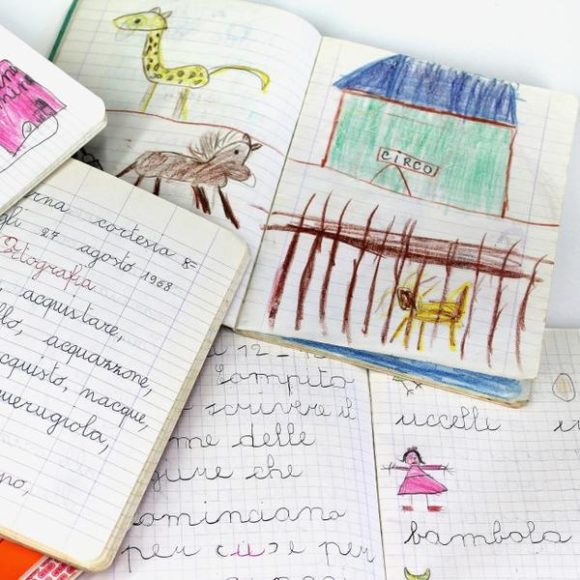 CIRCO
rna cortesia 8=
gli 27 agosto 1968
Ortografia
acquistare,
llo, acquazzone,
cquisto, macque,
uerugiola,
po,
12
Compito
scrivere il
me delle
gure che
ominciano
per e per
uccelli
bambola